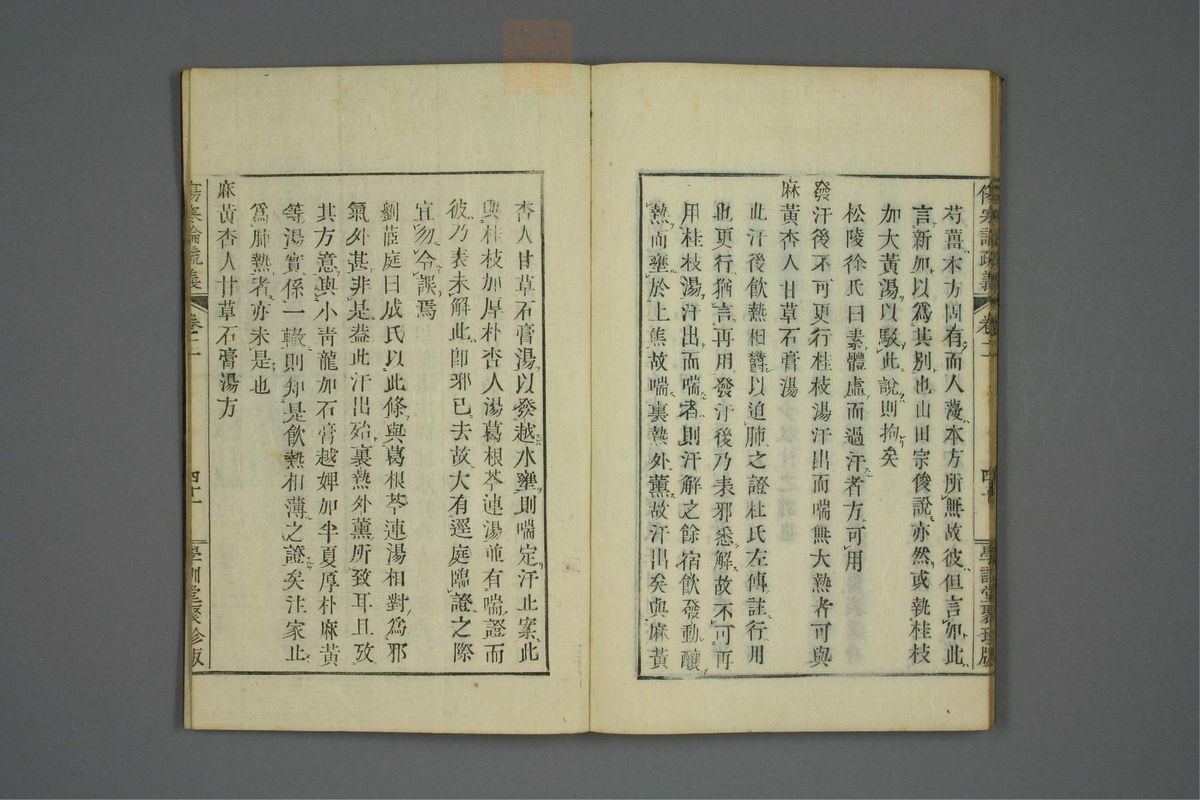 傷寒論疏義 卷二 四十 學訓堂聚珍版
芍薑本方固有而人蓡本方所無故彼但言如此
言新加以爲其別也山田宗俊說亦然或執桂枝
加大黃湯以駁此說則拘矣
松陵徐氏曰素體虛而過汗者方可用
發汗後不可更行桂枝湯汗出而喘無大熱者可與
麻黃杏人甘草石膏湯
此汗後飮熱相欝以迫肺之證杜氏左傳註行用
也更行猶言再用發汗後乃表邪悉解故不可再
用桂枝湯汗出而喘者則汗解之餘宿飮發動釀
熱而壅於上焦故喘裏熱外薰故汗出矣與麻黃
杏人甘草石膏湯以發越水壅則喘定汗止案此
與桂枝加厚朴杏人湯葛根芩連湯並有喘證而
彼乃表未解此卽邪已去故大有逕庭臨證之際
宜勿令誤焉
劉茝庭曰成氏以此條與葛根芩連湯相對爲邪
氣外甚非是葢此汗出殆裏熱外薰所致耳且攷
其方意與小靑龍加石膏越婢加半夏厚朴麻黃
等湯實係一轍則知是飮熱相薄之證矣注家止
爲肺熱者亦未是也
麻黃杏人甘草石膏湯方
傷寒論疏義 卷二 四十一 學訓堂聚珍版